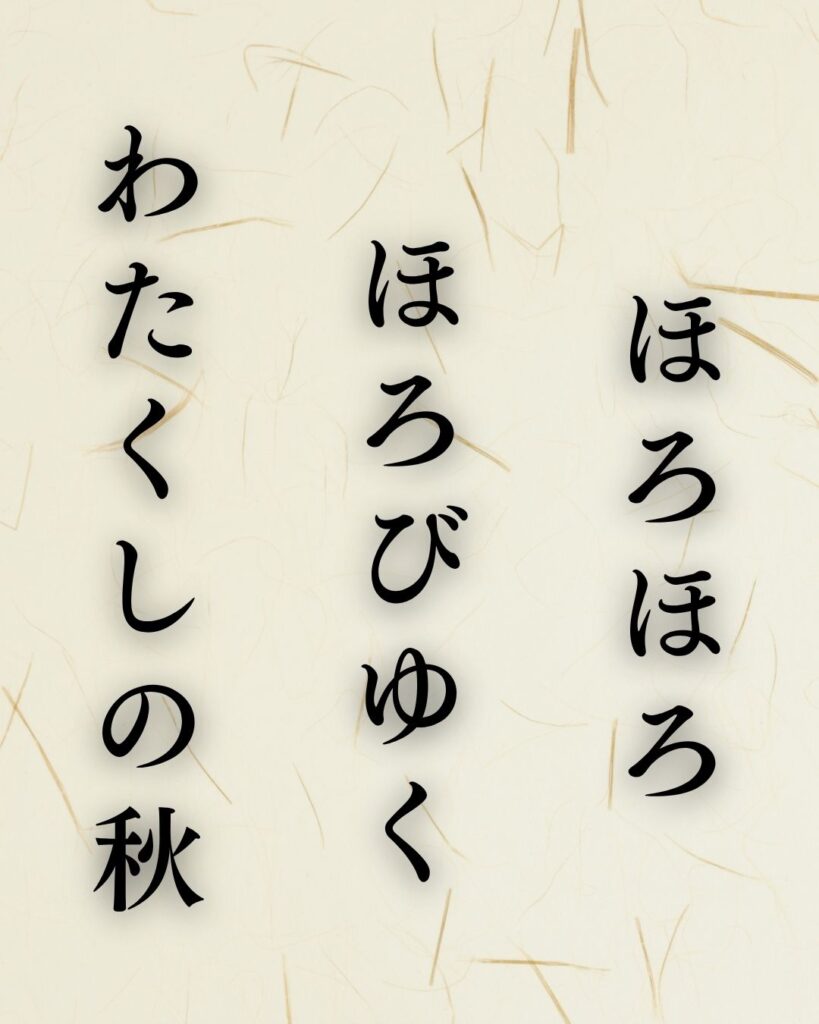 ほろほろ
ほろびゆく
わたくしの秋